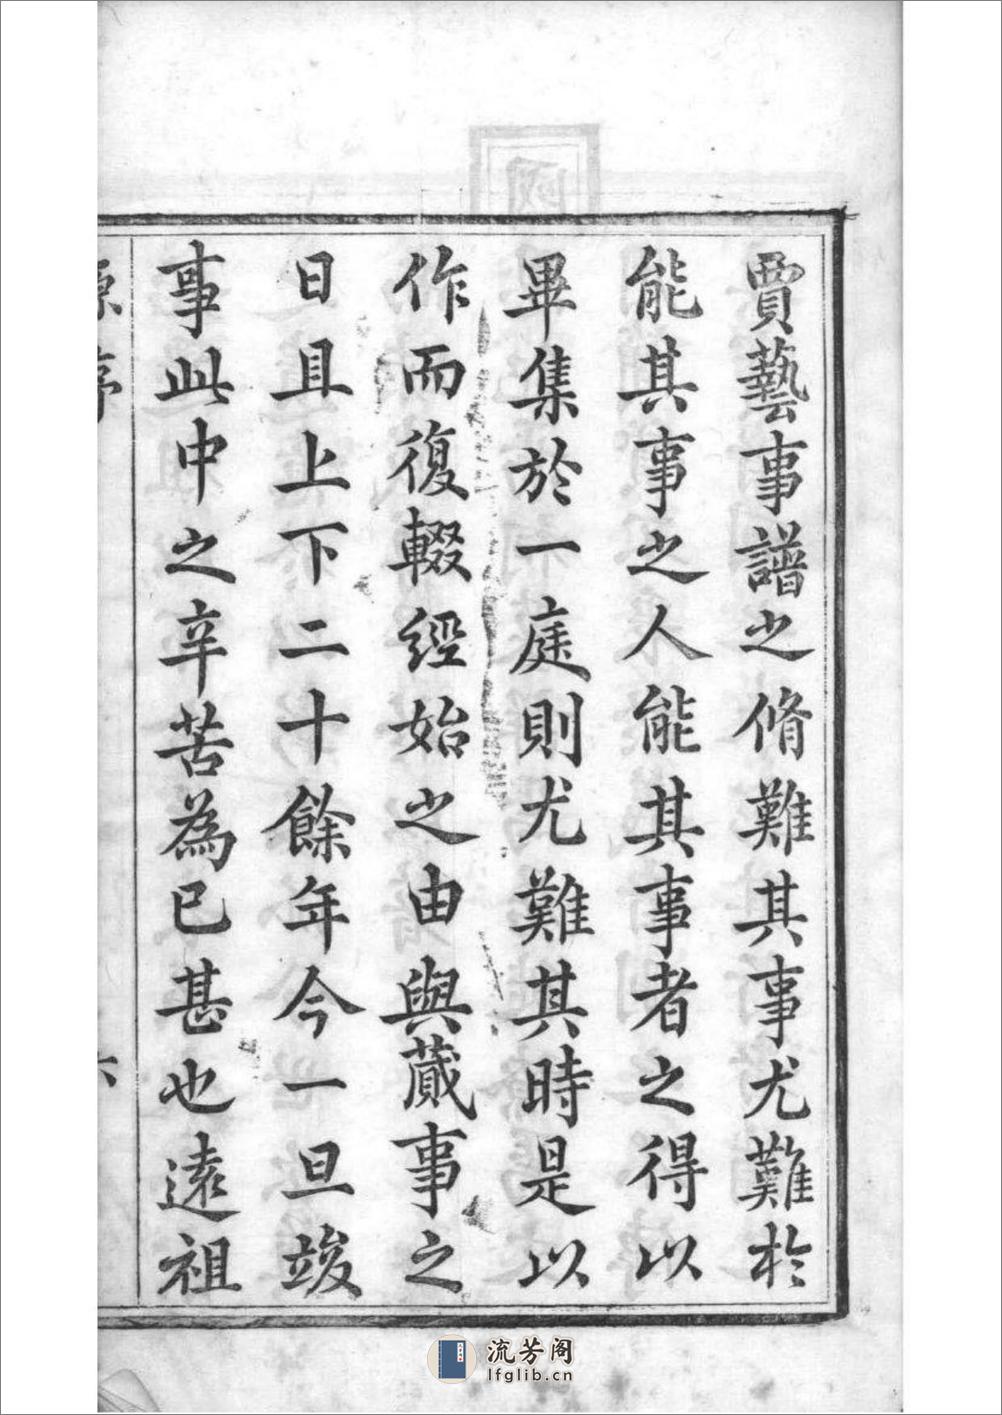 賈藝事譜之脩難其事尤難於
能其事之人能其事者之得以
畢集於一庭則尤難其時是以
作而復輟經始之由與蕆事之
日且上下二十餘年今一旦竣
事此中之辛苦為已甚也遠祖
原序
六
流芳阁
lfglib.cn